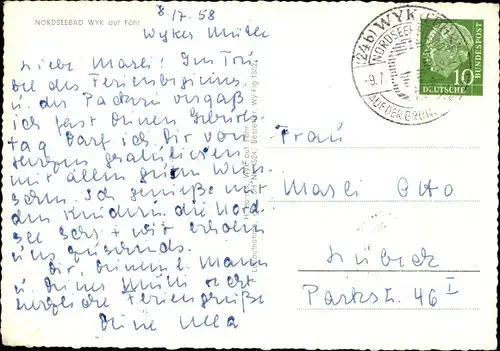 NORDSEEBAD WYK auf Föhr
8.17.58
Wyker Mühle
Liebe Marli! Im Tru-
bel des Ferienbeginns
u. der Packerei vergaß
ich fast Deinen Geburts-
tag. Darf ich Dir von
Herzen gratulieren
mit allen guten Wün-
schen. Ich genieße mit
den Kindern die Nord-
see sehr + wir erholen
uns zusehends.
Dir, Deinem l. Mann
u. Deiner Mutti recht
herzliche Feriengrüße
Deine Ulla
(24b) WYK
NORDSEE
-9.7.
AUF DER
10
DEUTSCHE
BUNDESPOST
Frau
Marli Otto
Lübeck
Parkstr. 46 I